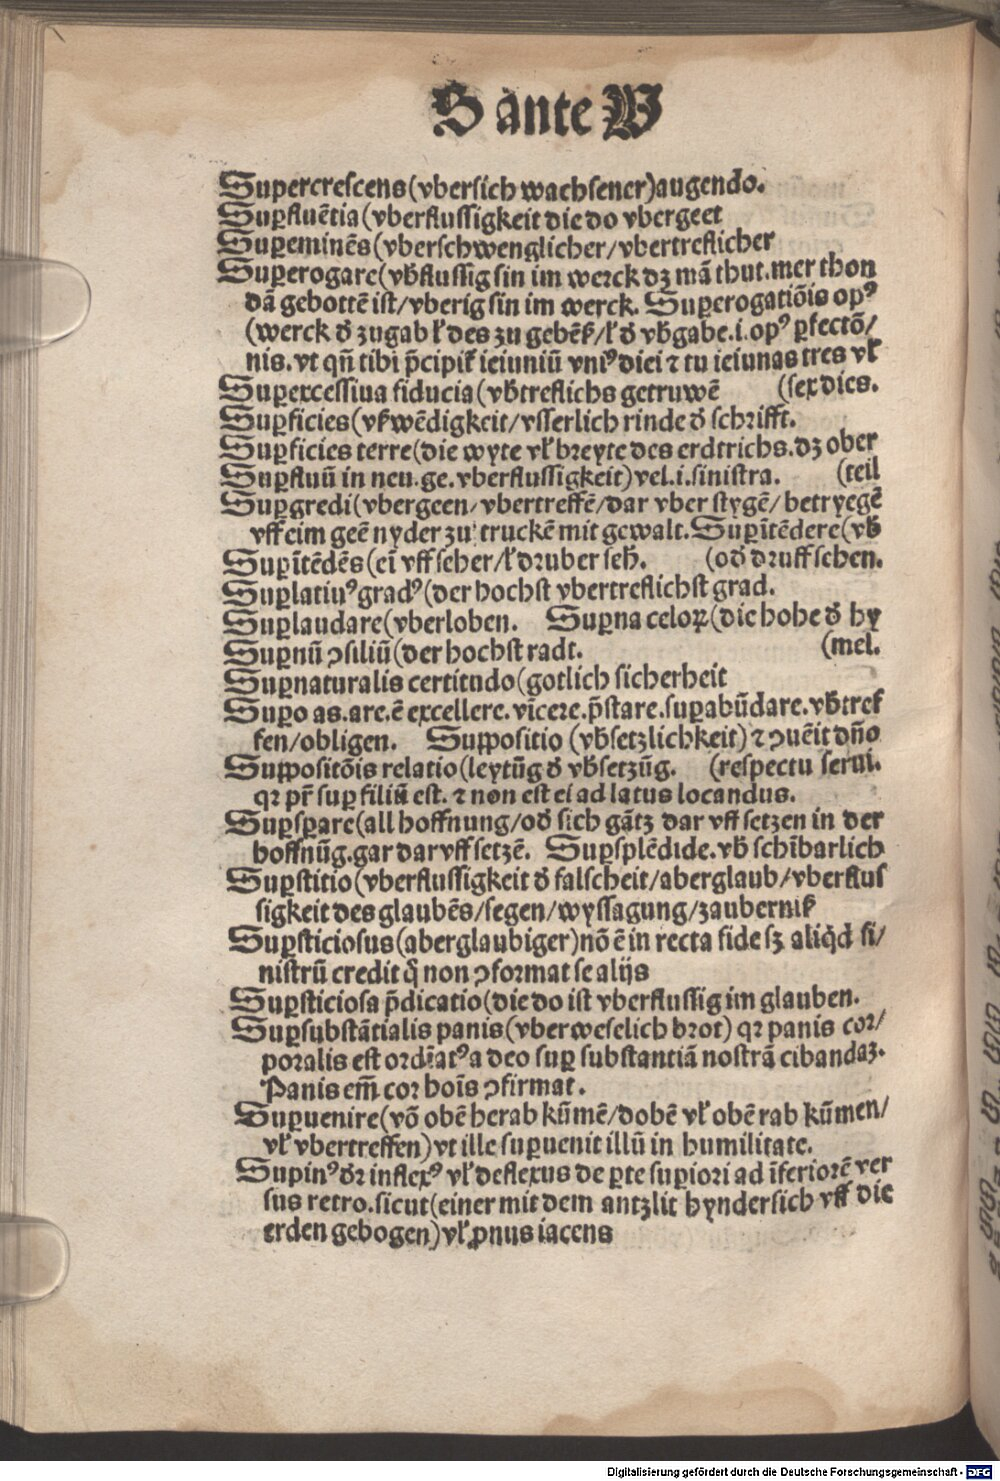 S ante W
Supercrescens (vbersich wachsener) augendo.
Suꝑfluẽtia (vberflussigkeit die do vbergeet
Suꝑeminẽs (vberschwenglicher/vbertreflicher
Suꝑerogare (vb̃flussig sin im werck dz mã thut. mer thon
dañ gebottẽ ist/vberig sin im werck. Suꝑerogatiõis opꝰ
(werck d̃ zugab ł des zu gebẽs̃/ł d̃ vb̃gabe .i. opꝰ ꝑfectõ/
nis. vt qñ tibi p̃cipit̃ ieiuniũ vniꝰ diei ⁊ tu ieiunas tres vł
Suꝑexcessiua fiducia (vb̃treflichs getruwẽ (sex dies.
Suꝑficies (vßwẽdigkeit/vsserlich rinde d̃ schrifft.
Suꝑficies terre (die wyte vł breyte des erdtrichs. dz ober
Suꝑfluũ in neu. ge. vberflussigkeit) vel .i. sinistra. (teil
Suꝑgredi (vbergeen/vbertreffẽ/dar vber stygẽ/betryegẽ
vff eim geẽ nyder zu truckẽ mit gewalt. Suꝑĩtẽdere (vb̃
Suꝑĩtẽdẽs (eĩ vff seher/ł druber seh̃. (od̃ druff sehen.
Suꝑlatiuꝰ gradꝰ (der hochst vbertreflichst grad.
Suꝑlaudare (vberloben. Suꝑna celoꝝ (die hohe d̃ hy
Suꝑnũ ꝯsiliũ (der hochst radt. (mel.
Suꝑnaturalis certitudo (gotlich sicherheit
Suꝑo as. are. ẽ excellere. vĩcere. p̃stare. suꝑabũdare. vb̃tref
fen/obligen. Suꝑpositio (vb̃setzlichkeit) ⁊ ꝯuẽit dño
Suꝑpositõis relatio (leytũg d̃ vb̃setzũg. (respectu serui.
qꝛ pr̃ suꝑ filiũ est. ⁊ non est ei ad latus locandus.
Suꝑsꝑare (all hoffnung/od̃ sich gãtz dar vff setzen in der
hoffnũg. gar dar vff setzẽ. Suꝑsplẽdide. vb̃ schĩbarlich
Suꝑstitio (vberflussigkeit d̃ falscheit/aberglaub/vberflus
sigkeit des glaubẽs/segen/wyssagung/zaubernis̃
Suꝑsticiosus (aberglaubiger) nõ ẽ in recta fide sz aliq̃d si/
nistrũ credit q̃ non ꝯformat se alijs
Suꝑsticiosa p̃dicatio (die do ist vberflussig im glauben.
Suꝑsubstãtialis panis (vberweselich brot) qꝛ panis cor/
poralis est ordĩatꝰ a deo suꝑ substantiã nostrã cibandaz.
Panis em̃ cor hoĩs ꝯfirmat.
Suꝑuenire (võ obẽ herab kũmẽ/dobẽ vł obẽ rab kũmen/
vł vbertreffen) vt ille suꝑuenit illũ in humilitate.
Supinꝰ dr̃ inflexꝰ vł deflexus de ꝑte suꝑiori ad ĩferiorẽ ver
sus retro. sicut (einer mit dem antzlit hyndersich vff die
erden gebogen) vł ꝓnus iacens
Digitalisierung gefördert durch die Deutsche Forschungsgemeinschaft - DFG